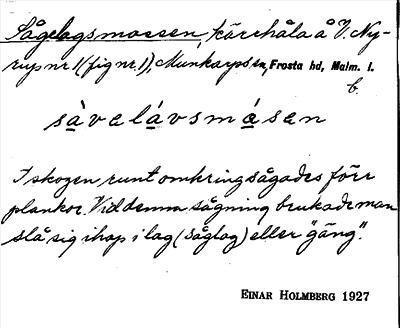 Sågelagsmossen, kärrhåla å V. Ny-
rup nr 1 (fig nr. 1), Munkarps sn, Frosta hd, Malm. l.
b.
såvelávsmåsen
I skogen runt omkring sågades förr
plankor. Vid denna sågning brukade man
slå sig ihop i lag (såglag) eller "gäng".
EINAR HOLMBERG 1927